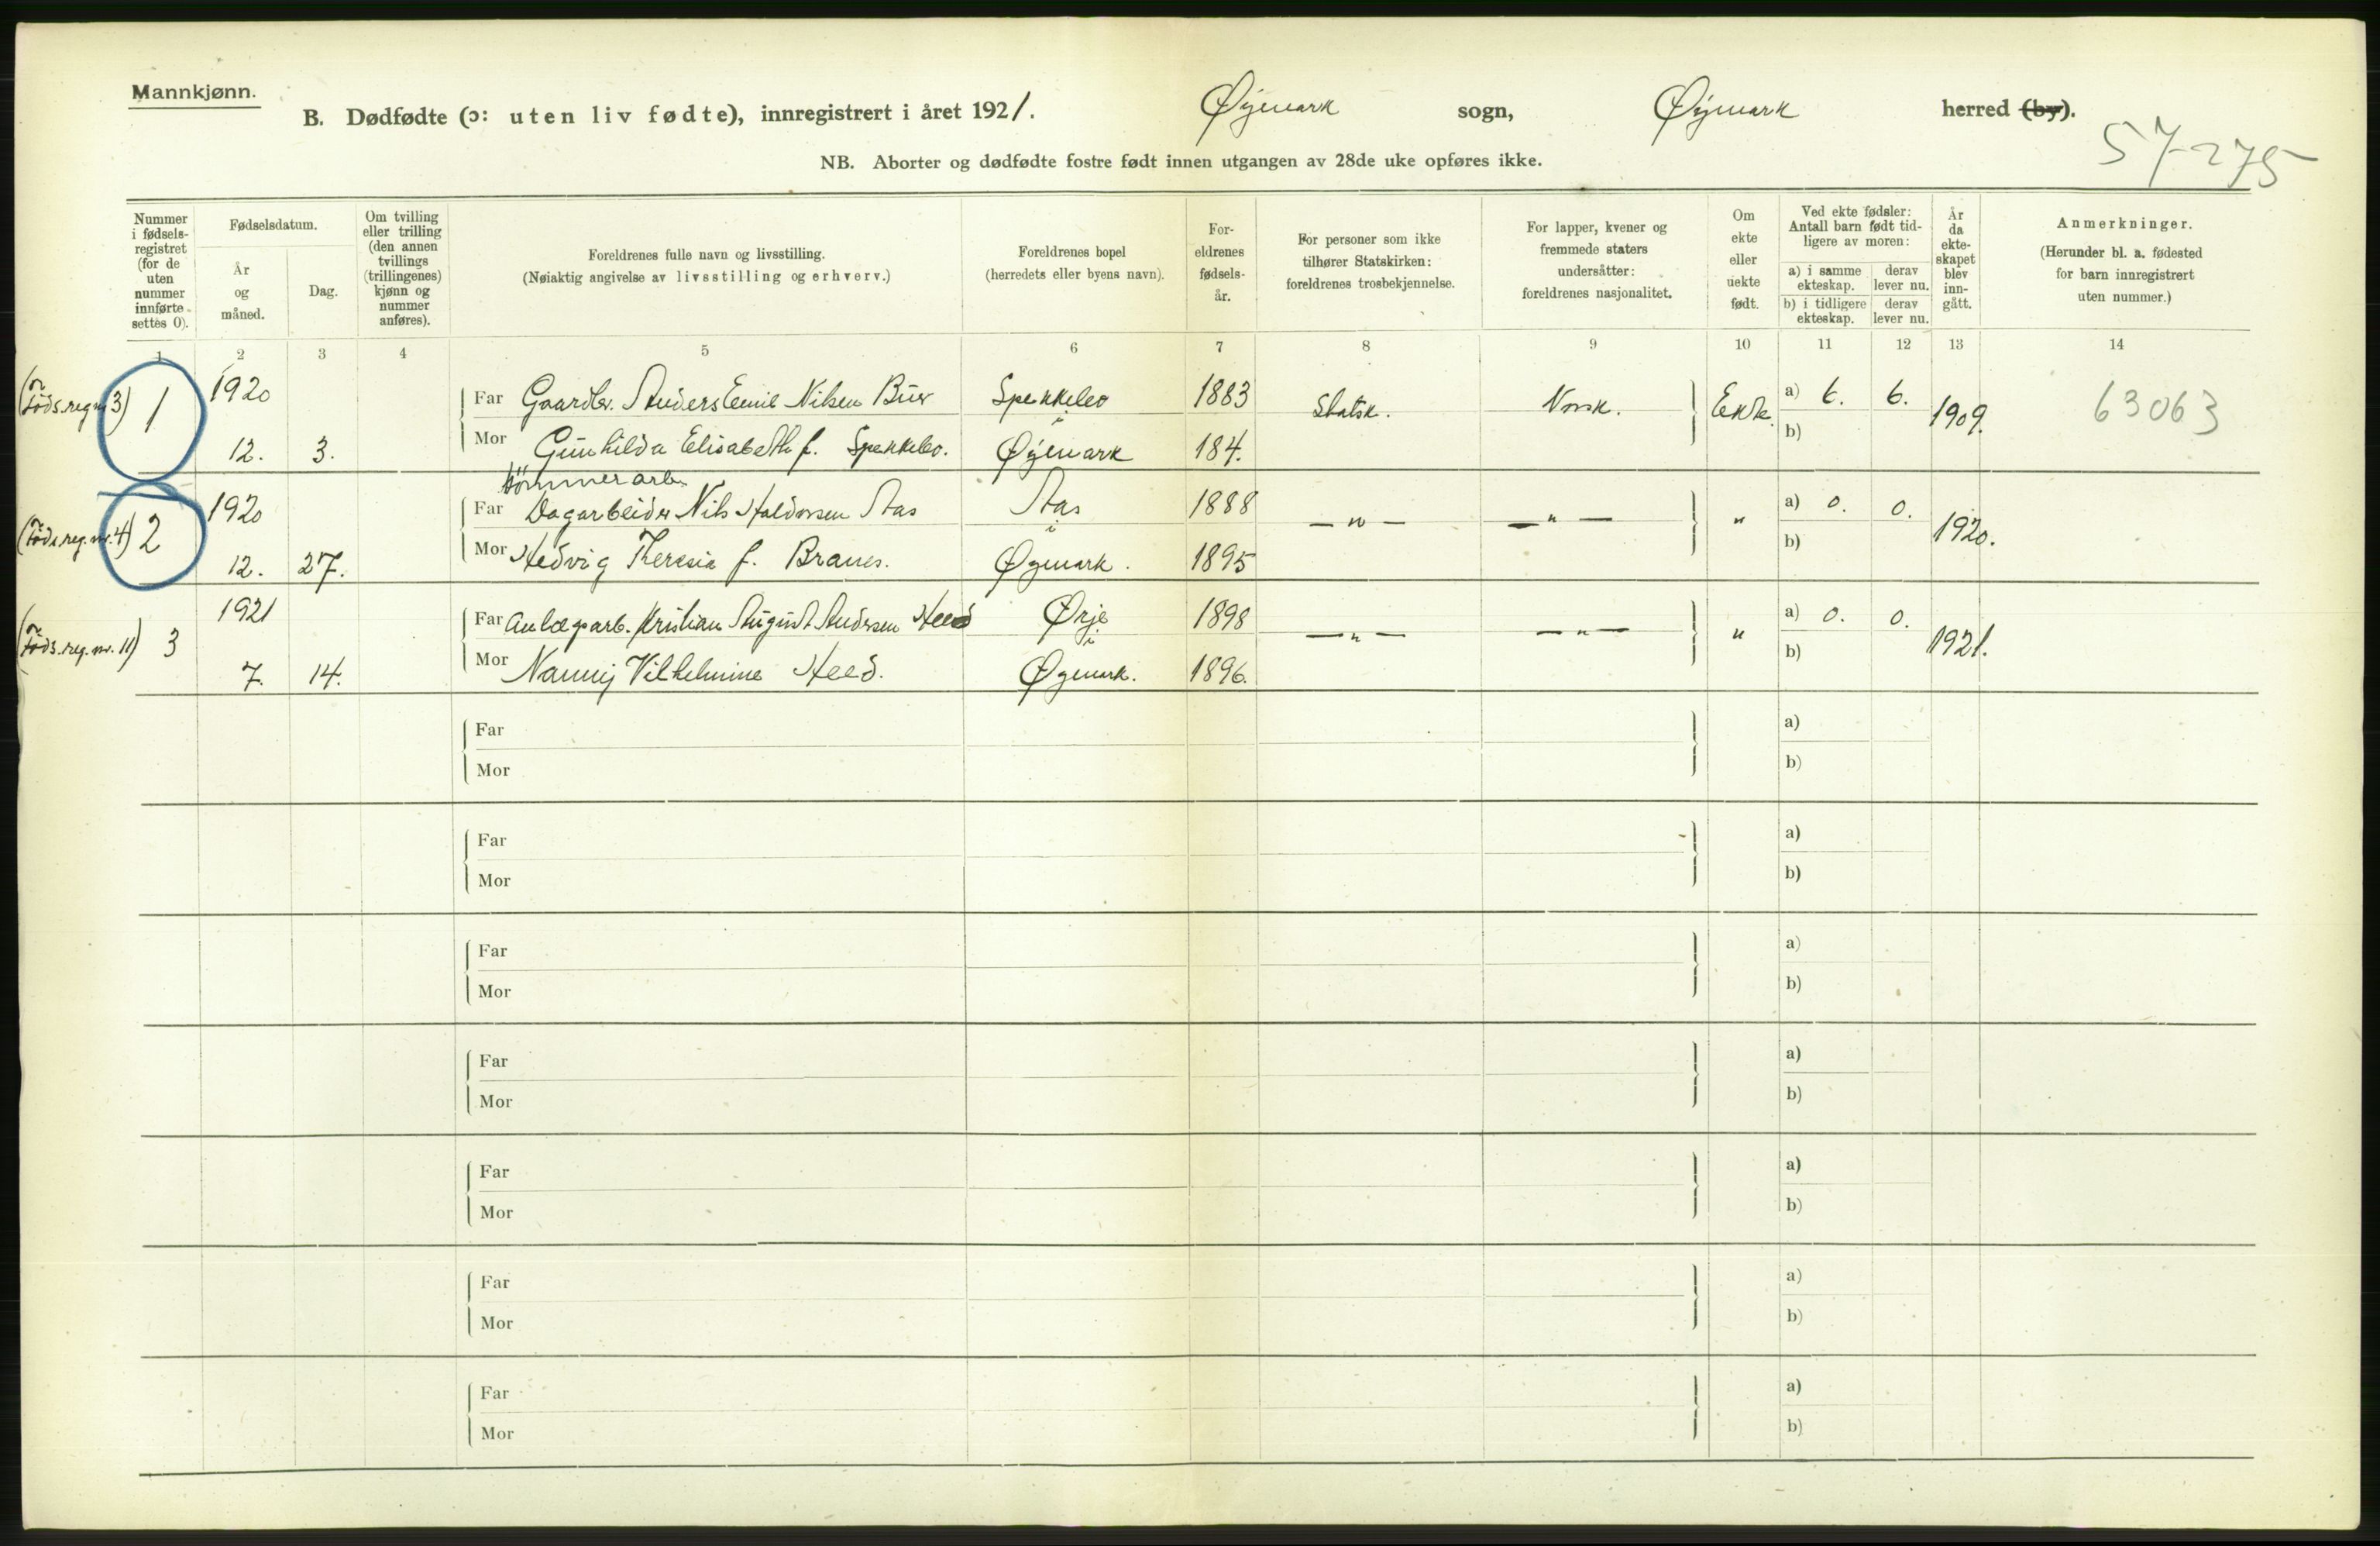 Mannkjønn.
B. Dødfødte (ɔ: uten liv fødte), innregistrert i året 1921. Øymark sogn, Øymark herred (by).
57-275
NB. Aborter og dødfødte fostre født innen utgangen av 28de uke opføres ikke.
Nummer i fødsels-registret (for de uten nummer innførte settes 0).
Fødselsdatum.
År og måned.
Dag.
Om tvilling eller trilling (den annen tvillings (trillingenes) kjønn og nummer anføres).
Foreldrenes fulle navn og livsstilling.
(Nøiaktig angivelse av livsstilling og erhverv.)
Foreldrenes bopel
(herredets eller byens navn).
For-eldrenes fødsels-år.
For personer som ikke tilhører Statskirken: foreldrenes trosbekjennelse.
For lapper, kvener og fremmede staters undersåtter: foreldrenes nasjonalitet.
Om ekte eller uekte født.
Ved ekte fødsler: Antall barn født tid-ligere av moren:
a) i samme ekteskap.
derav lever nu.
b) i tidligere ekteskap.
derav lever nu.
År da ekte-skapet blev inn-gått.
Anmerkninger.
(Herunder bl. a. fødested for barn innregistrert uten nummer.)
1 2 3 4 5 6 7 8 9 10 11 12 13 14
(Föds.reg nr 3) 1 1920 Far Gaardbr. Anders Emil Nilsen Buer Spekkebo 1883 Statsk. Norsk. Ekte. a) 6. 6. 1909. 63063
12. 3. Mor Gunhilda Elisabeth f. Spekkebo. i Øymark 184. b)
tömmerarb.
(Föds.reg. nr. 4) 2 1920 Far Dagarbeider Nils Haldorsen Aas Aas 1888 — " — — " — " a) 0. 0. 1920.
12. 27. Mor Hedvig Theresia f. Branes. i Øymark. 1895 b)
(Föds.reg. nr. 11) 3 1921 Far Anlægsarb. Kristian August Andersen Heed Ørje 1898 — " — — " — " a) 0. 0. 1921.
7. 14. Mor Nanny Vilhelmine Heed. i Øymark. 1896. b)
Far a)
Mor b)
Far a)
Mor b)
Far a)
Mor b)
Far a)
Mor b)
Far a)
Mor b)
Far a)
Mor b)
Far a)
Mor b)